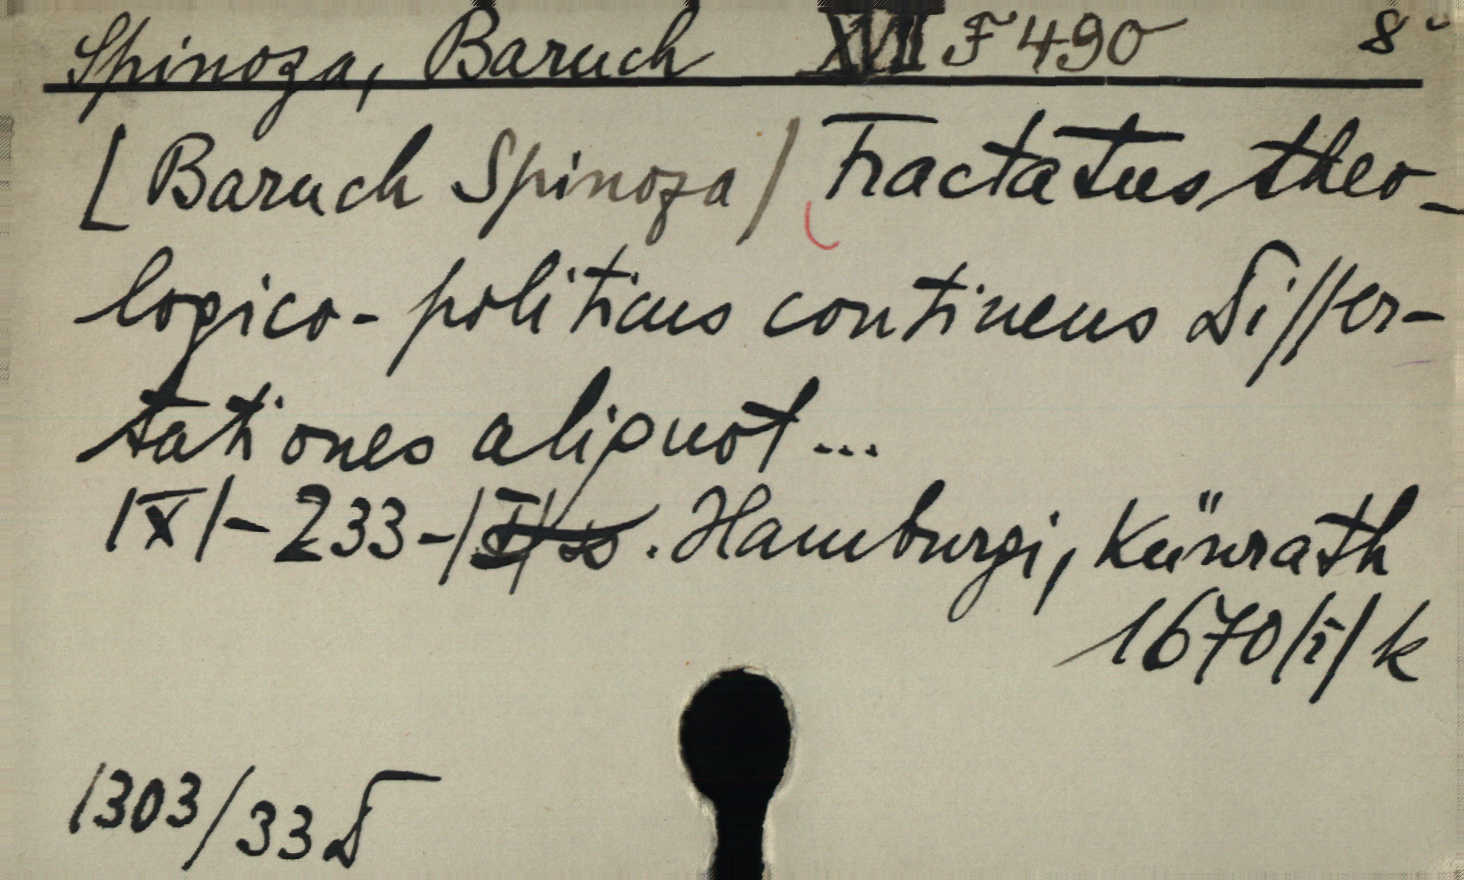 Spinoza, Baruch XVII F 490 8°
[Baruch Spinoza] Tractatus theo-
logico-politicus continens Disser-
tationes aliquot...
|X|-233-|I| ss. Hamburgi, Künrath
1670 |i| k
1303/33 D